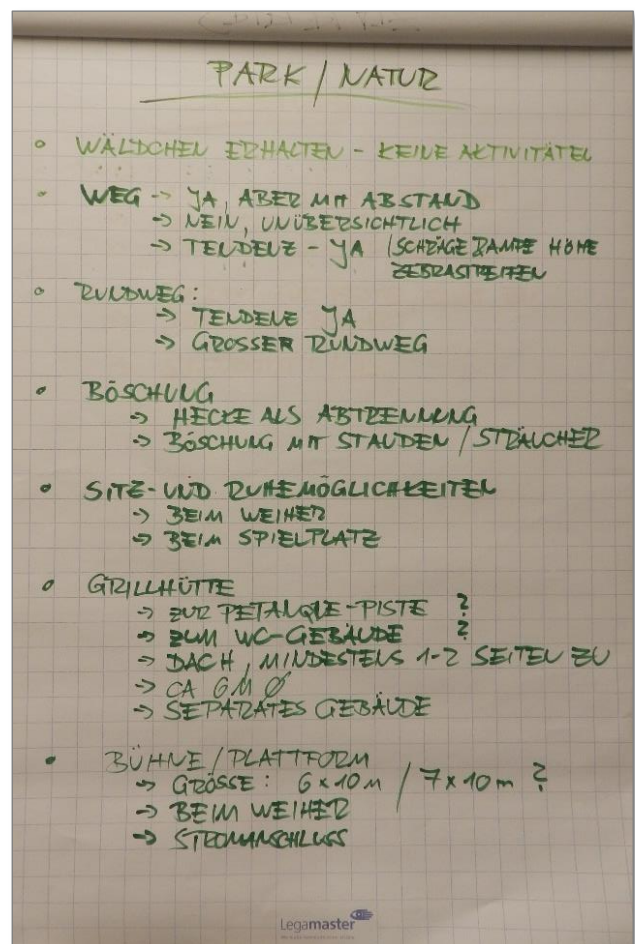 PARK / NATUR
• WÄLDCHEN ERHALTEN - KEINE AKTIVITÄTEN
• WEG -> JA, ABER MIT ABSTAND
-> NEIN, UNÜBERSICHTLICH
-> TENDENZ - JA / SCHRÄGE RAMPE HÖHE
ZEBRASTREIFEN
• RUNDWEG:
-> TENDENZ JA
-> GROSSER RUNDWEG
• BÖSCHUNG
-> HECKE ALS ABTRENNUNG
-> BÖSCHUNG MIT STAUDEN / STRÄUCHER
• SITZ- UND RUHEMÖGLICHKEITEN
-> BEIM WEIHER
-> BEIM SPIELPLATZ
• GRILLHÜTTE
-> ZUR PETANQUE-PISTE ?
-> ZUM WC-GEBÄUDE ?
-> DACH, MINDESTENS 1-2 SEITEN ZU
-> CA 6M Ø
-> SEPARATES GEBÄUDE
• BÜHNE / PLATTFORM
-> GRÖSSE: 6 x 10 m / 7 x 10 m ?
-> BEIM WEIHER
-> STROMANSCHLUSS
Legamaster